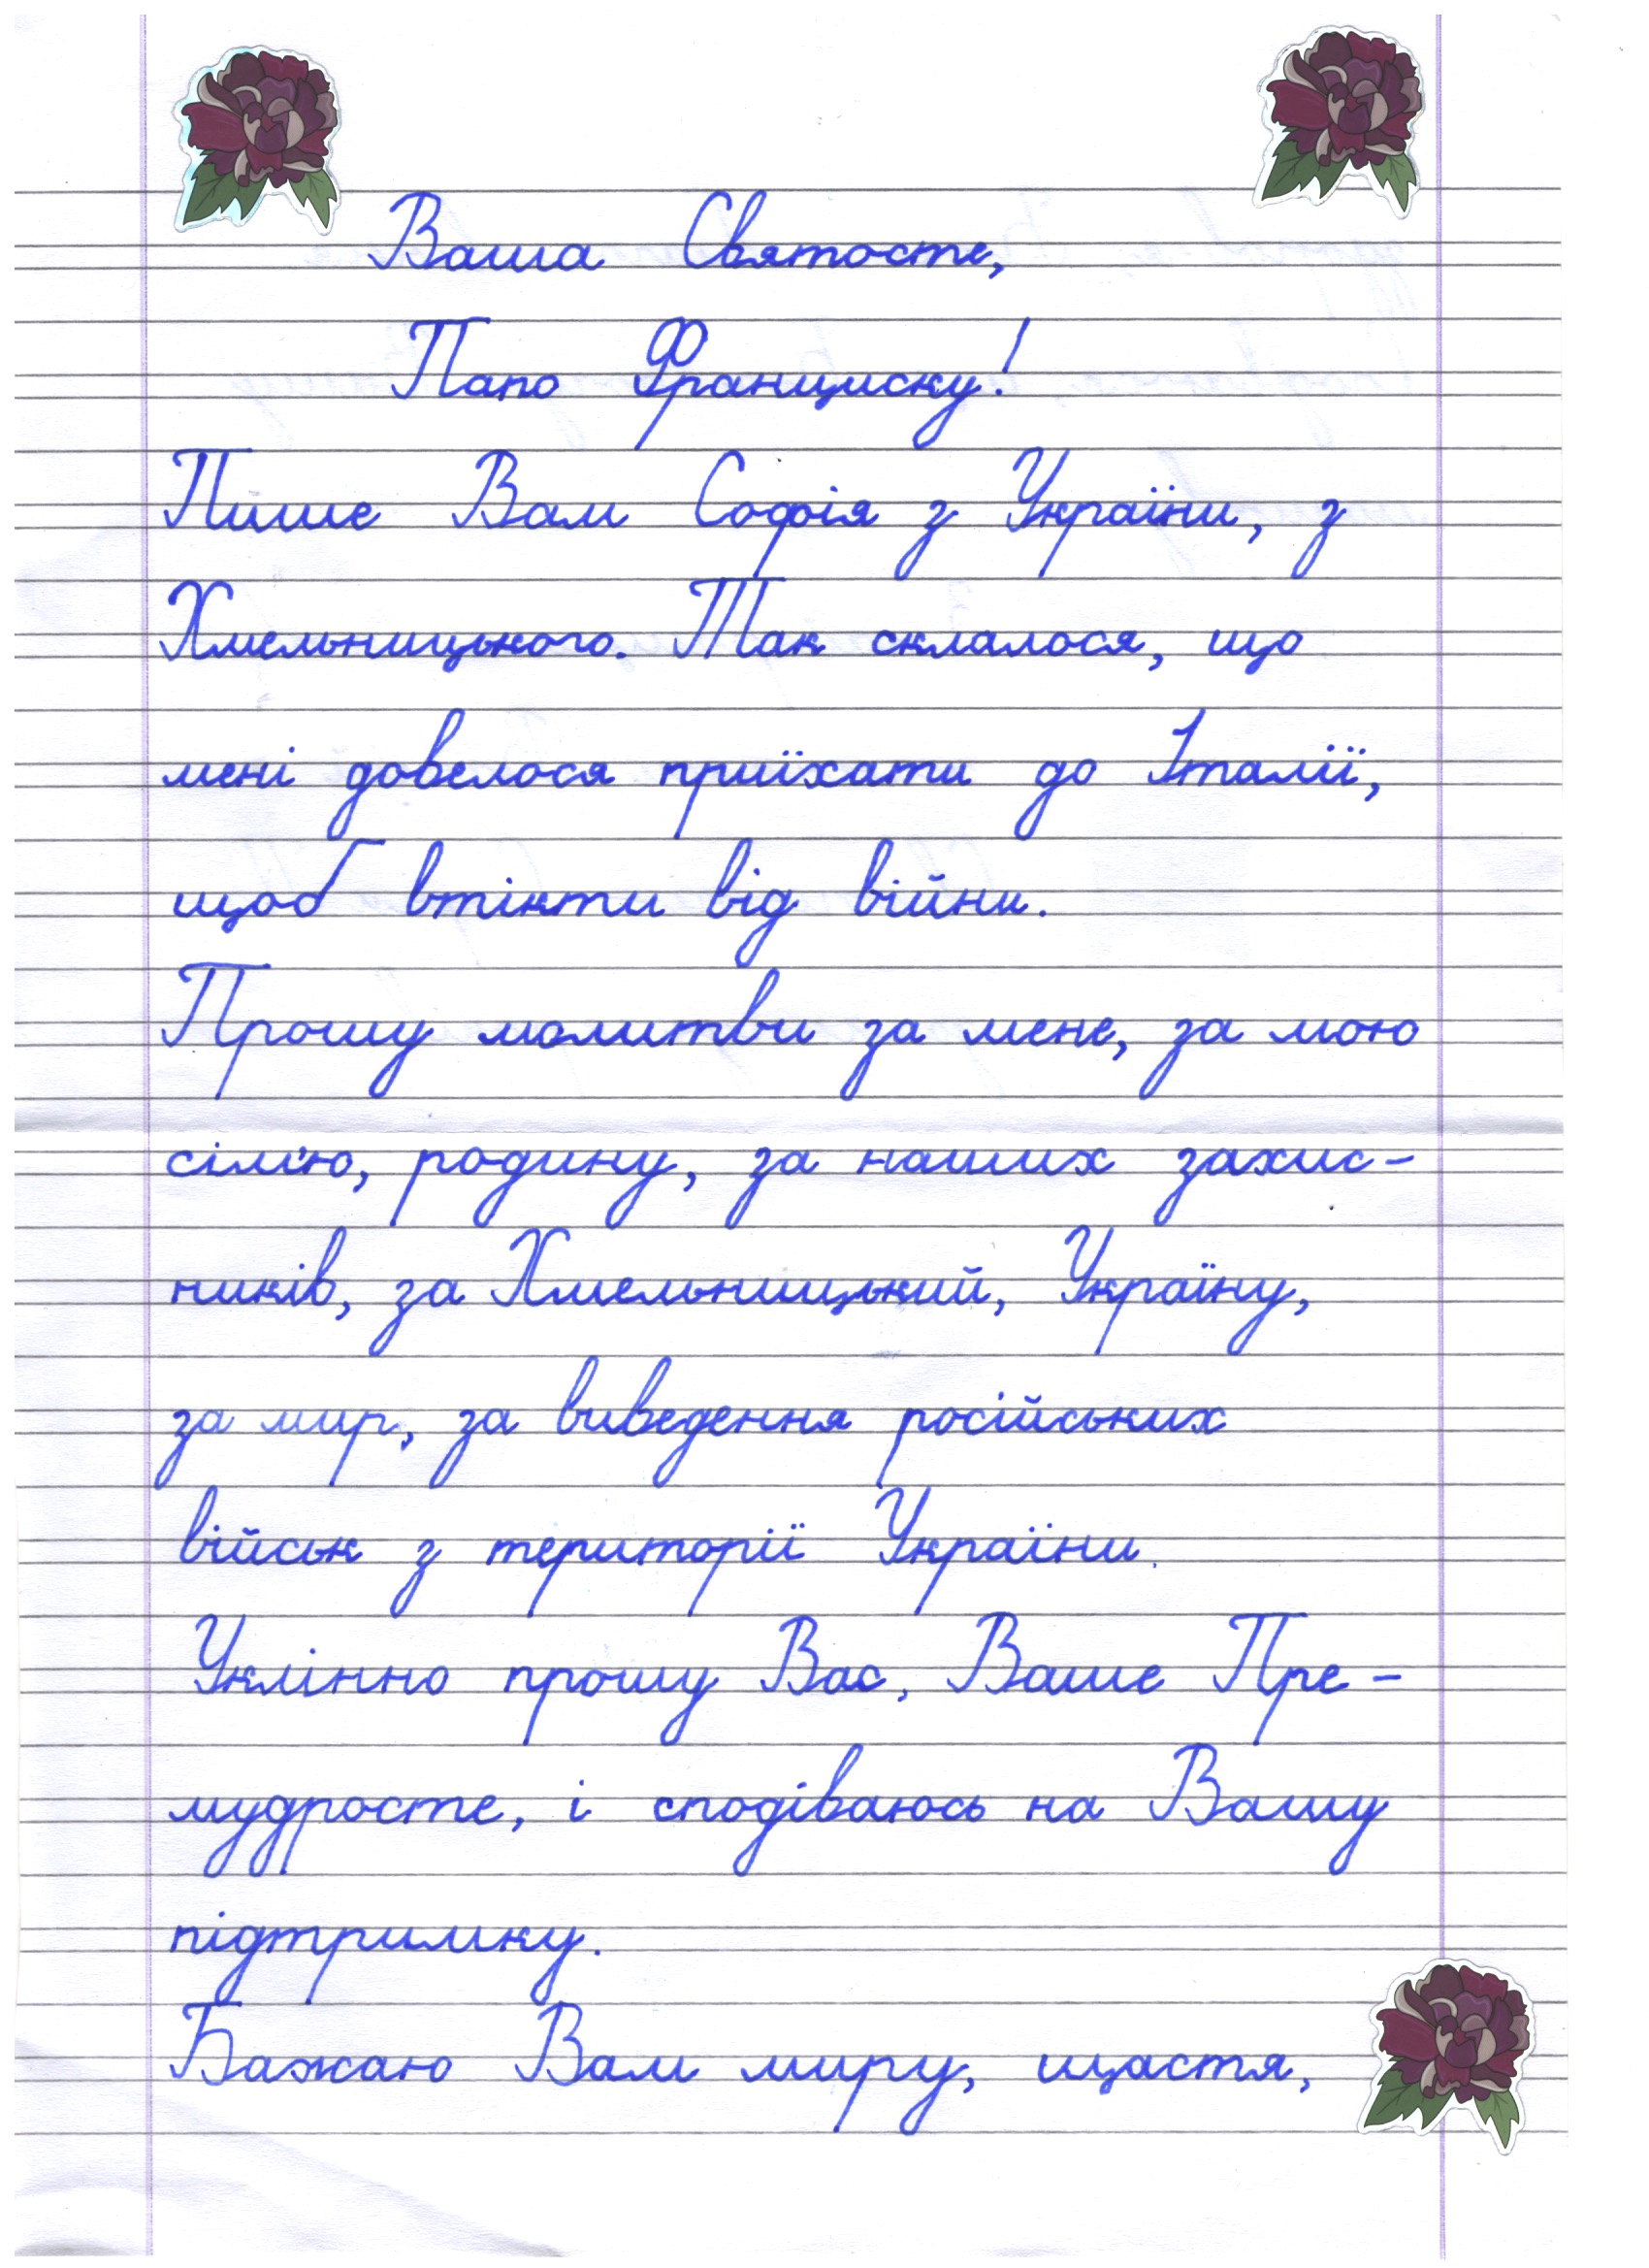 Ваша Святосте,
Папо Франциску!
Пише Вам Софія з України, з
Хмельницького. Так склалося, що
мені довелося приїхати до Італії,
щоб втікти від війни.
Прошу молитви за мене, за мою
сім'ю, родину, за наших захис-
ників, за Хмельницький, Україну,
за мир, за виведення російських
військ з території України.
Уклінно прошу Вас, Ваше Пре-
мудросте, і сподіваюсь на Вашу
підтримку.
Бажаю Вам миру, щастя,